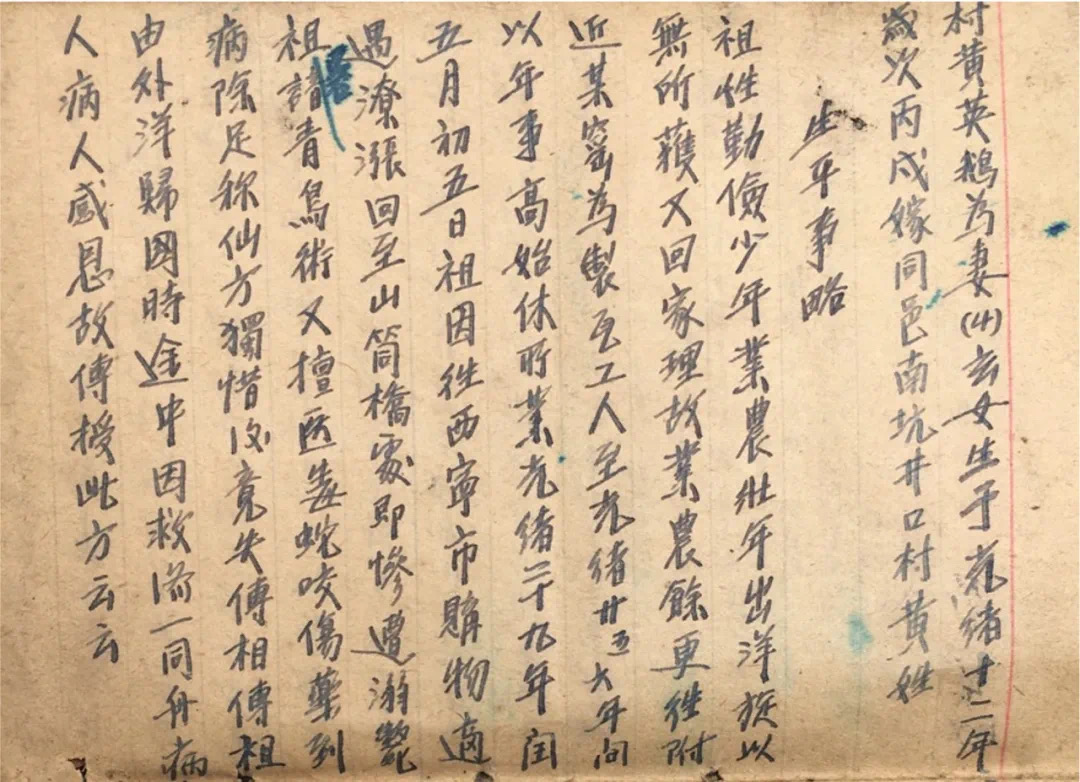 村黄英鵝為妻(4)玄女生于光緒十二年
歲次丙戌嫁同邑南坑井口村黄姓
生平事略
祖性勤儉少年業農壯年出洋旋以
無所獲又回家理故業農餘更往附
近某窑為製瓦工人至光緒廿五六年间
以年事高始休所業光緒二十九年闰
五月初五日祖因往西寧市購物適
遇潦漲回至山筒橋處即慘遭溺斃
祖諳青鳥術又擅医毒蛇咬傷藥到
病除足称仙方獨惜後竟失傳相傳祖
由外洋歸國時途中因救済一同舟病
人病人感恩故傳授此方云云